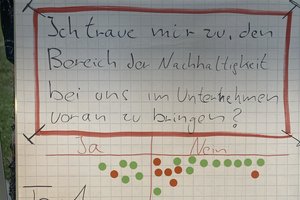 Ich traue mir zu, den
Bereich der Nachhaltigkeit
bei uns im Unternehmen
voran zu bringen?
Ja Nein